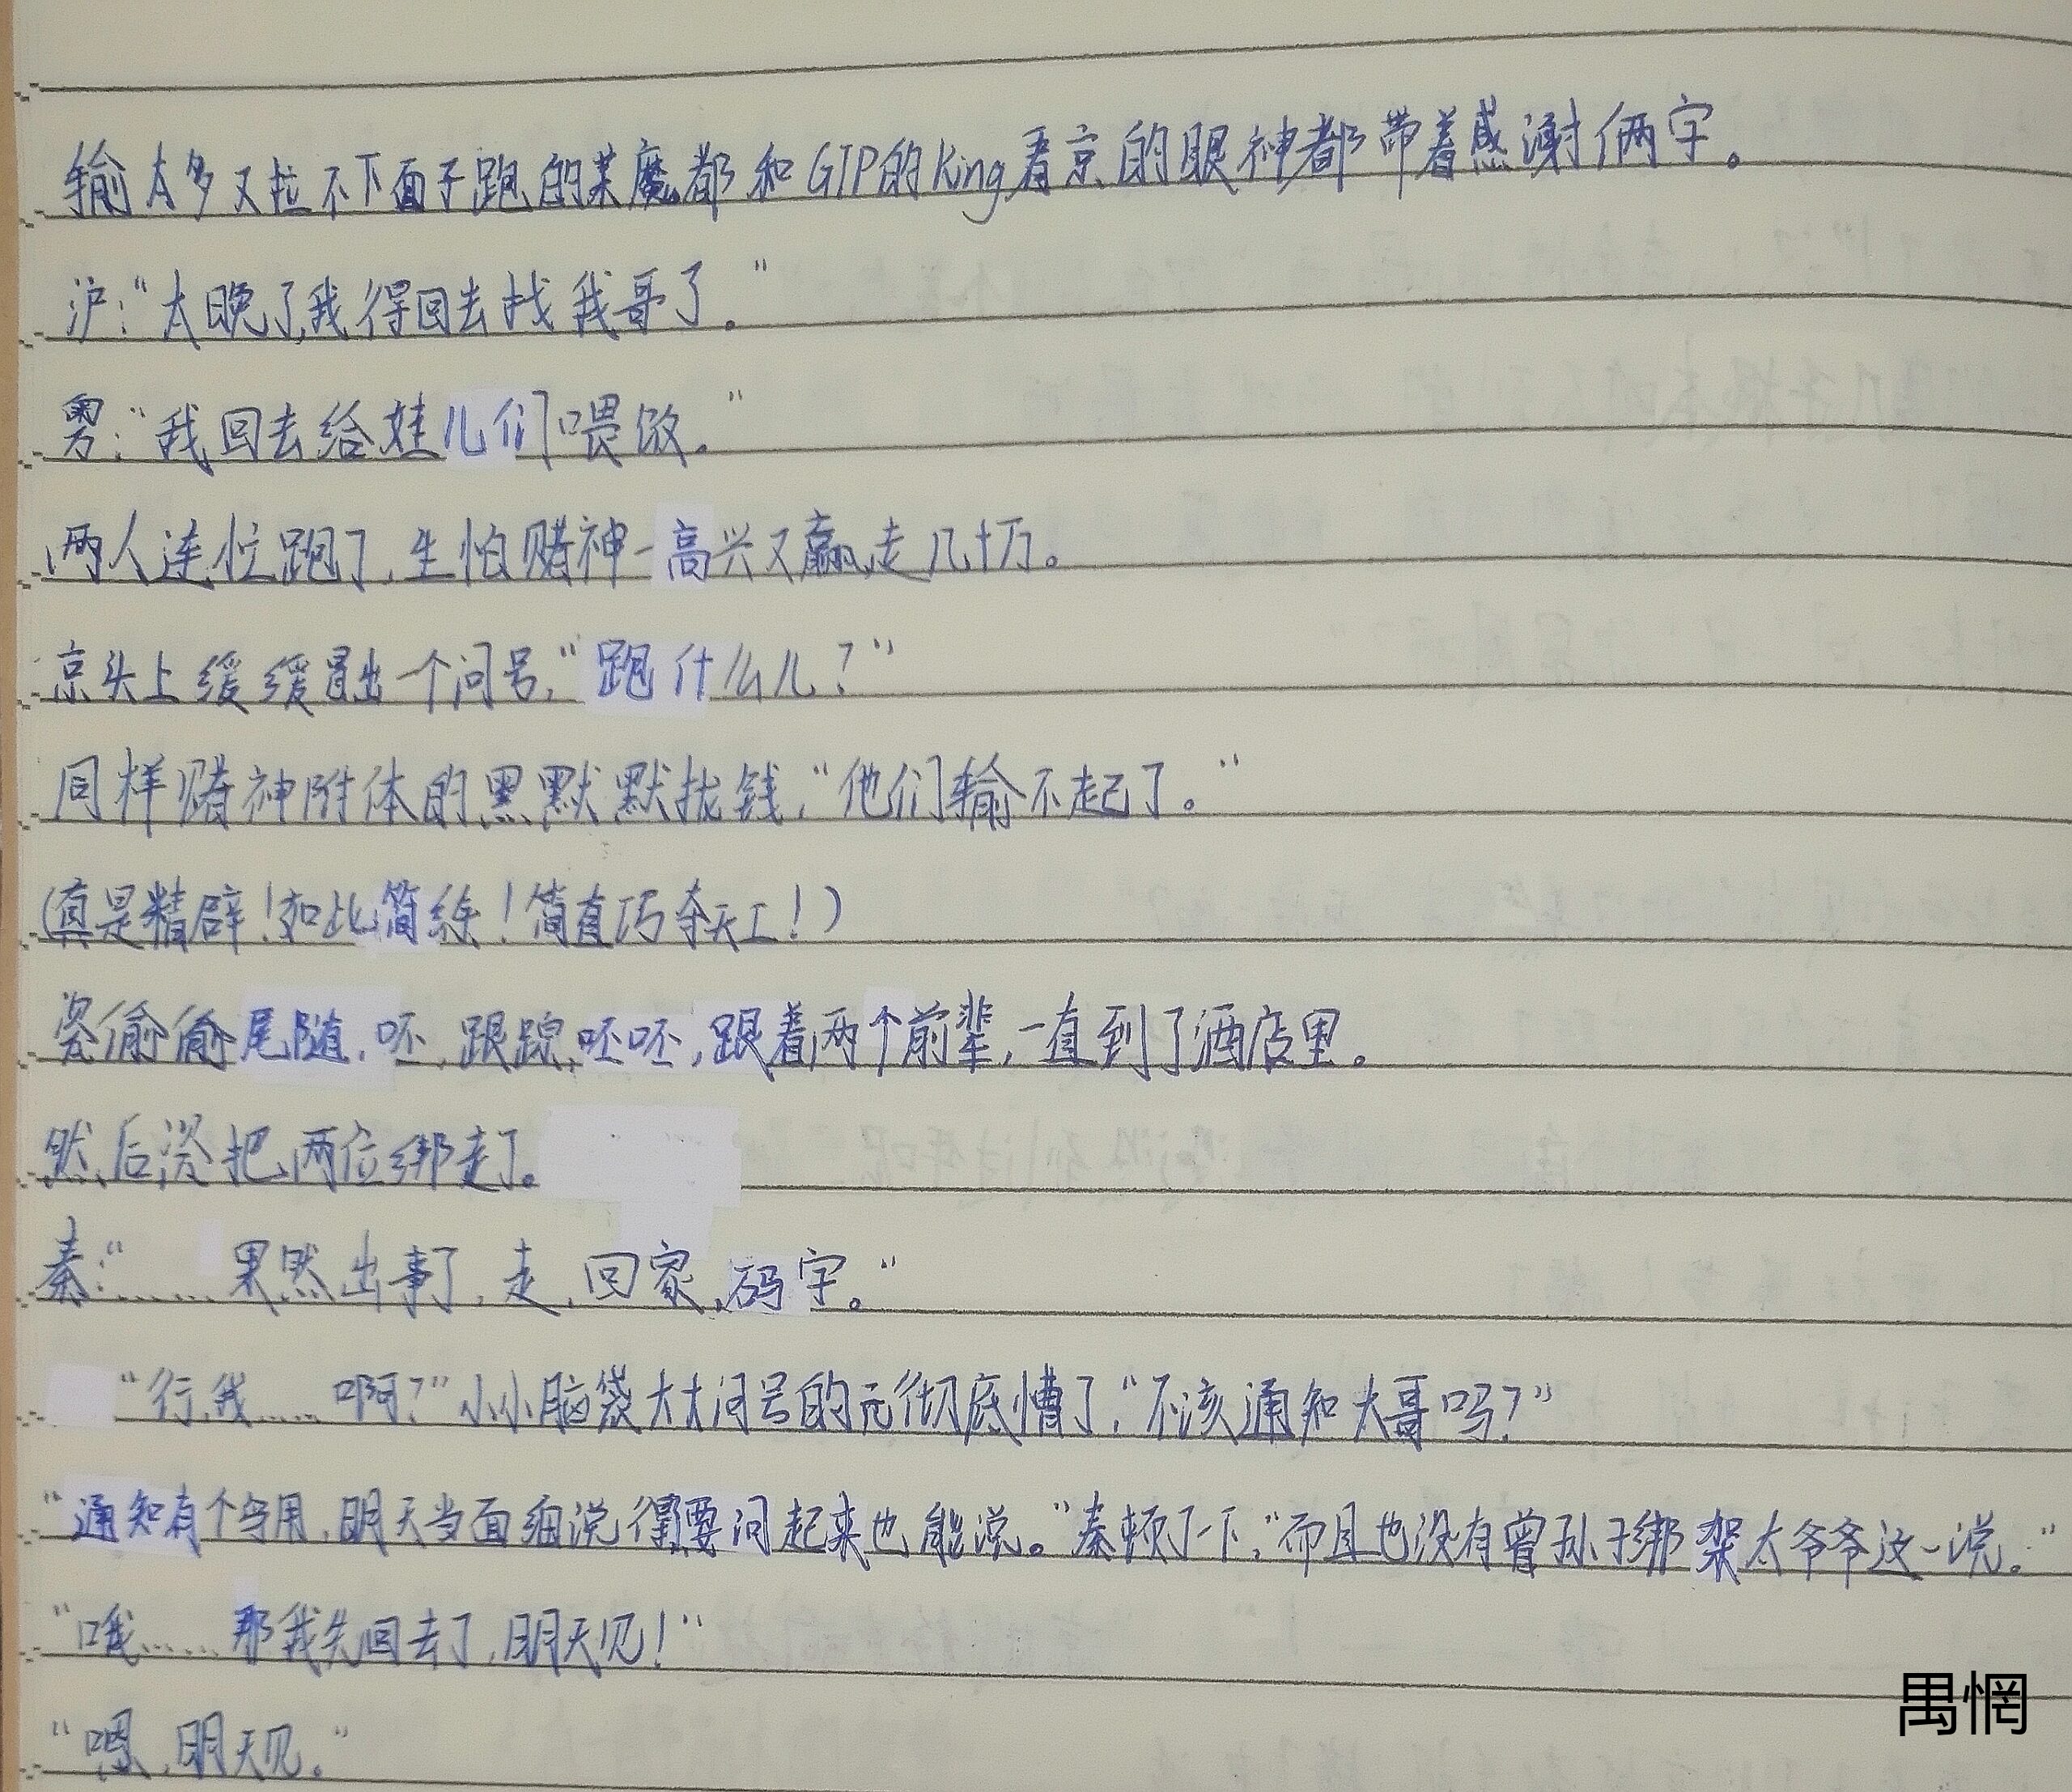 输太多又拉不下面子跑的某魔都和GTP的King看京的眼神都带着感谢俩字。
沪:“太晚了,我得回去找我哥了。”
粤:“我回去给娃儿们喂饭。”
两人连忙跑了,生怕赌神一高兴又赢走几十万。
京头上缓缓冒出一个问号,“跑什么儿?”
同样赌神附体的黑默默拢钱,“他们输不起了。”
(真是精辟!如此简练!简直巧夺天工!)
瓷偷偷尾随,呸,跟踪,呸呸,跟着两个前辈,一直到了酒店里。
然后瓷把两位绑走了。
秦:“……果然出事了,走,回家,码字。”
“行,我……啊?”小小脑袋大大问号的元彻底懵了,“不该通知大哥吗?”
“通知有个鸟用,明天当面细说得,要问起来也能说。”秦顿了一下,“而且也没有曾孙子绑架太爷爷这一说。”
“哦……那我先回去了,明天见!”
“嗯,明天见。”
禺惘